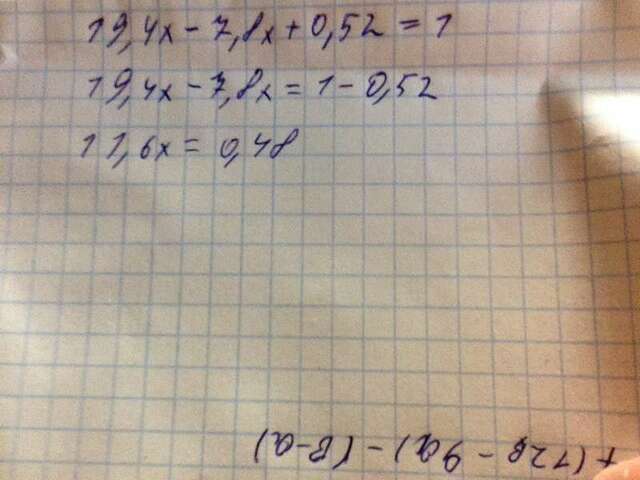 19,4x - 7,8x + 0,52 = 1
19,4x - 7,8x = 1 - 0,52
11,6x = 0,48
+(12в - 9а) - (в-а)